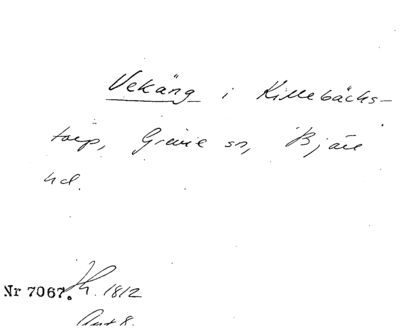 Vekäng i Killebäcks-
torp, Grevie sn, Bjäre
hd.
Nr 7067. 1812